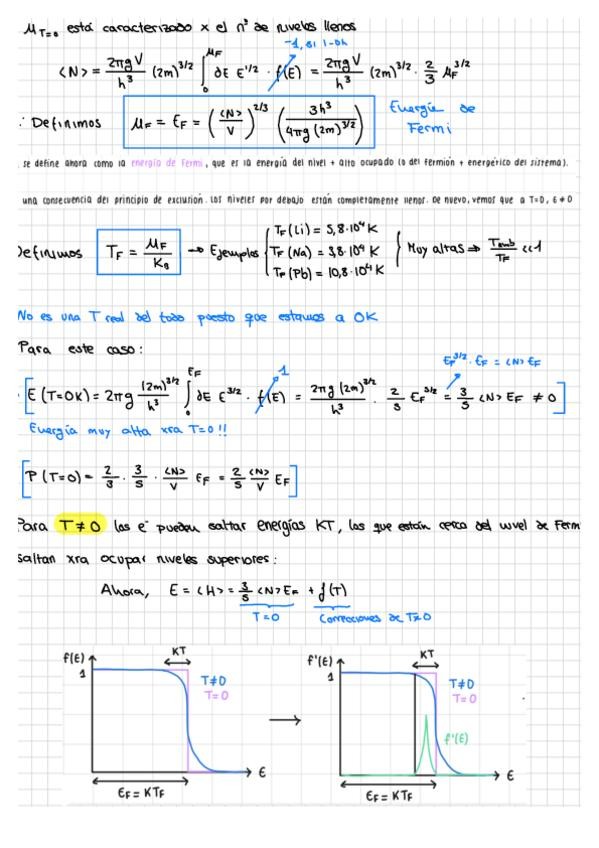 μ_T=0 está caracterizado x el nº de niveles llenos
-1, si 1-0k
⟨N⟩ = 2πgV/h³ (2m)^3/2 ∫_0^μF dE E^1/2 · f(E) = 2πgV/h³ (2m)^3/2 · 2/3 μF^3/2
∴ Definimos μF = EF = (⟨N⟩/V)^2/3 (3h³/4πg(2m)^3/2) Energía de Fermi
se define ahora como la energía de Fermi, que es la energía del nivel + alto ocupado (o del fermión + energético del sistema).
una consecuencia del principio de exclusión. Los niveles por debajo están completamente llenos. De nuevo, vemos que a T=0, E≠0
Definimos TF = μF/KB → Ejemplos { TF(Li) = 5,8·10⁴ K
TF(Na) = 3,8·10⁴ K
TF(Pb) = 10,8·10⁴ K } Muy altas ⇒ Tamb/TF <<1
No es una T real del todo puesto que estamos a 0K
Para este caso:
EF^3/2 · EF = ⟨N⟩ EF
[E(T=0K) = 2πg (2m)^3/2/h³ ∫_0^EF dE E^3/2 · f(E) = 2πg(2m)^3/2/h³ · 2/5 EF^5/2 = 3/5 ⟨N⟩ EF ≠ 0]
1
Energía muy alta xra T=0!!
[P(T=0) = 2/3 · 3/5 · ⟨N⟩/V EF = 2/5 ⟨N⟩/V EF]
Para T≠0 los e⁻ pueden saltar energías KT, los que están cerca del nivel de Ferm
saltan xra ocupar niveles superiores:
Ahora, E = ⟨H⟩ = 3/5 ⟨N⟩ EF + f(T)
T=0 Correcciones de T≠0
f(E) KT
1
T≠0
T=0
E
EF = KTF
f'(E) KT
1
T≠0
T=0
f'(E)
E
EF = KTF